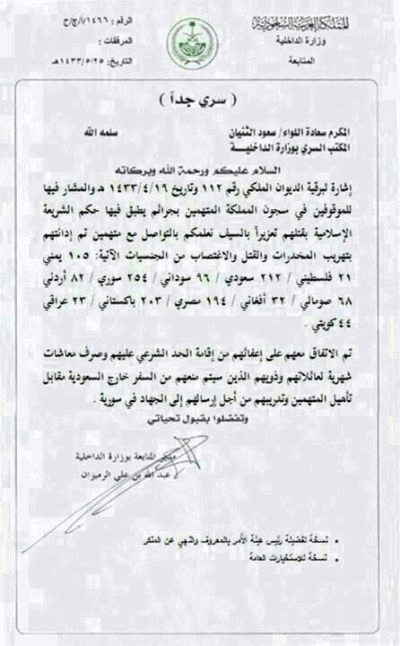 المملكة العربية السعودية
وزارة الداخلية
المتابعة
الرقم : ١٤٦٦/أ/ج/ح
المرفقات :
التاريخ: ١٤٣٣/٥/٢٥هـ
( سري جداً )
المكرم سعادة اللواء/ سعود الثنيان سلمه الله
المكتب السري بوزارة الداخلية
السلام عليكم ورحمة الله وبركاته
إشارة لبرقية الديوان الملكي رقم ١١٢ وتاريخ ١٤٣٣/٤/١٩ هـ والمشار فيها
للموقوفين في سجون المملكة المتهمين بجرائم يطبق فيها حكم الشريعة
الإسلامية بقتلهم تعزيراً بالسيف نعلمكم بالتواصل مع متهمين تم إدانتهم
بتهريب المخدرات والقتل والاغتصاب من الجنسيات الآتية: ١٠٥ يمني
٢١ فلسطيني / ٢١٢ سعودي / ٩٦ سوداني / ٢٥٤ سوري / ٨٢ أردني
٦٨ صومالي / ٣٢ أفغاني / ١٩٤ مصري / ٢٠٣ باكستاني / ٢٣ عراقي
٤٤ كويتي .
تم الاتفاق معهم على إعفائهم من إقامة الحد الشرعي عليهم وصرف معاشات
شهرية لعائلاتهم وذويهم الذين سيتم منعهم من السفر خارج السعودية مقابل
تأهيل المتهمين وتدريبهم من أجل إرسالهم إلى الجهاد في سورية .
وتفضلوا بقبول تحياتي
مدير المتابعة بوزارة الداخلية
عبد الله بن علي الرميزان
• نسخة لفضيلة رئيس هيئة الأمر بالمعروف والنهي عن المنكر
• نسخة للاستخبارات العامة